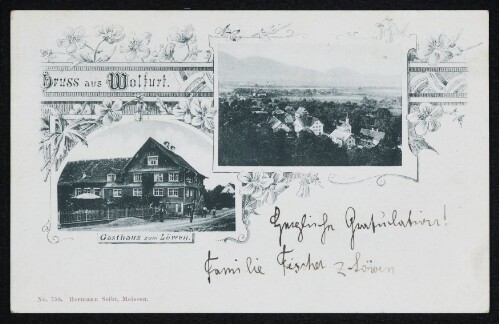 Gruss aus Wolfurt.
Gasthaus zum Löwen.
Herzliche Gratulation!
Familie Fischer z. Löwen
No. 756. Hermann Seibt, Meissen.